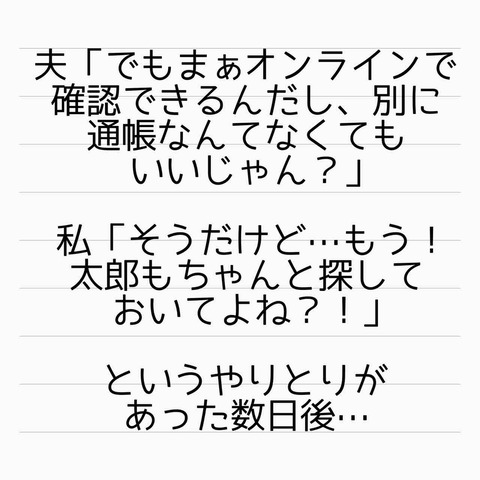 夫「でもまぁオンラインで
確認できるんだし、別に
通帳なんてなくても
いいじゃん？」
私「そうだけど…もう！
太郎もちゃんと探して
おいてよね？！」
というやりとりが
あった数日後…